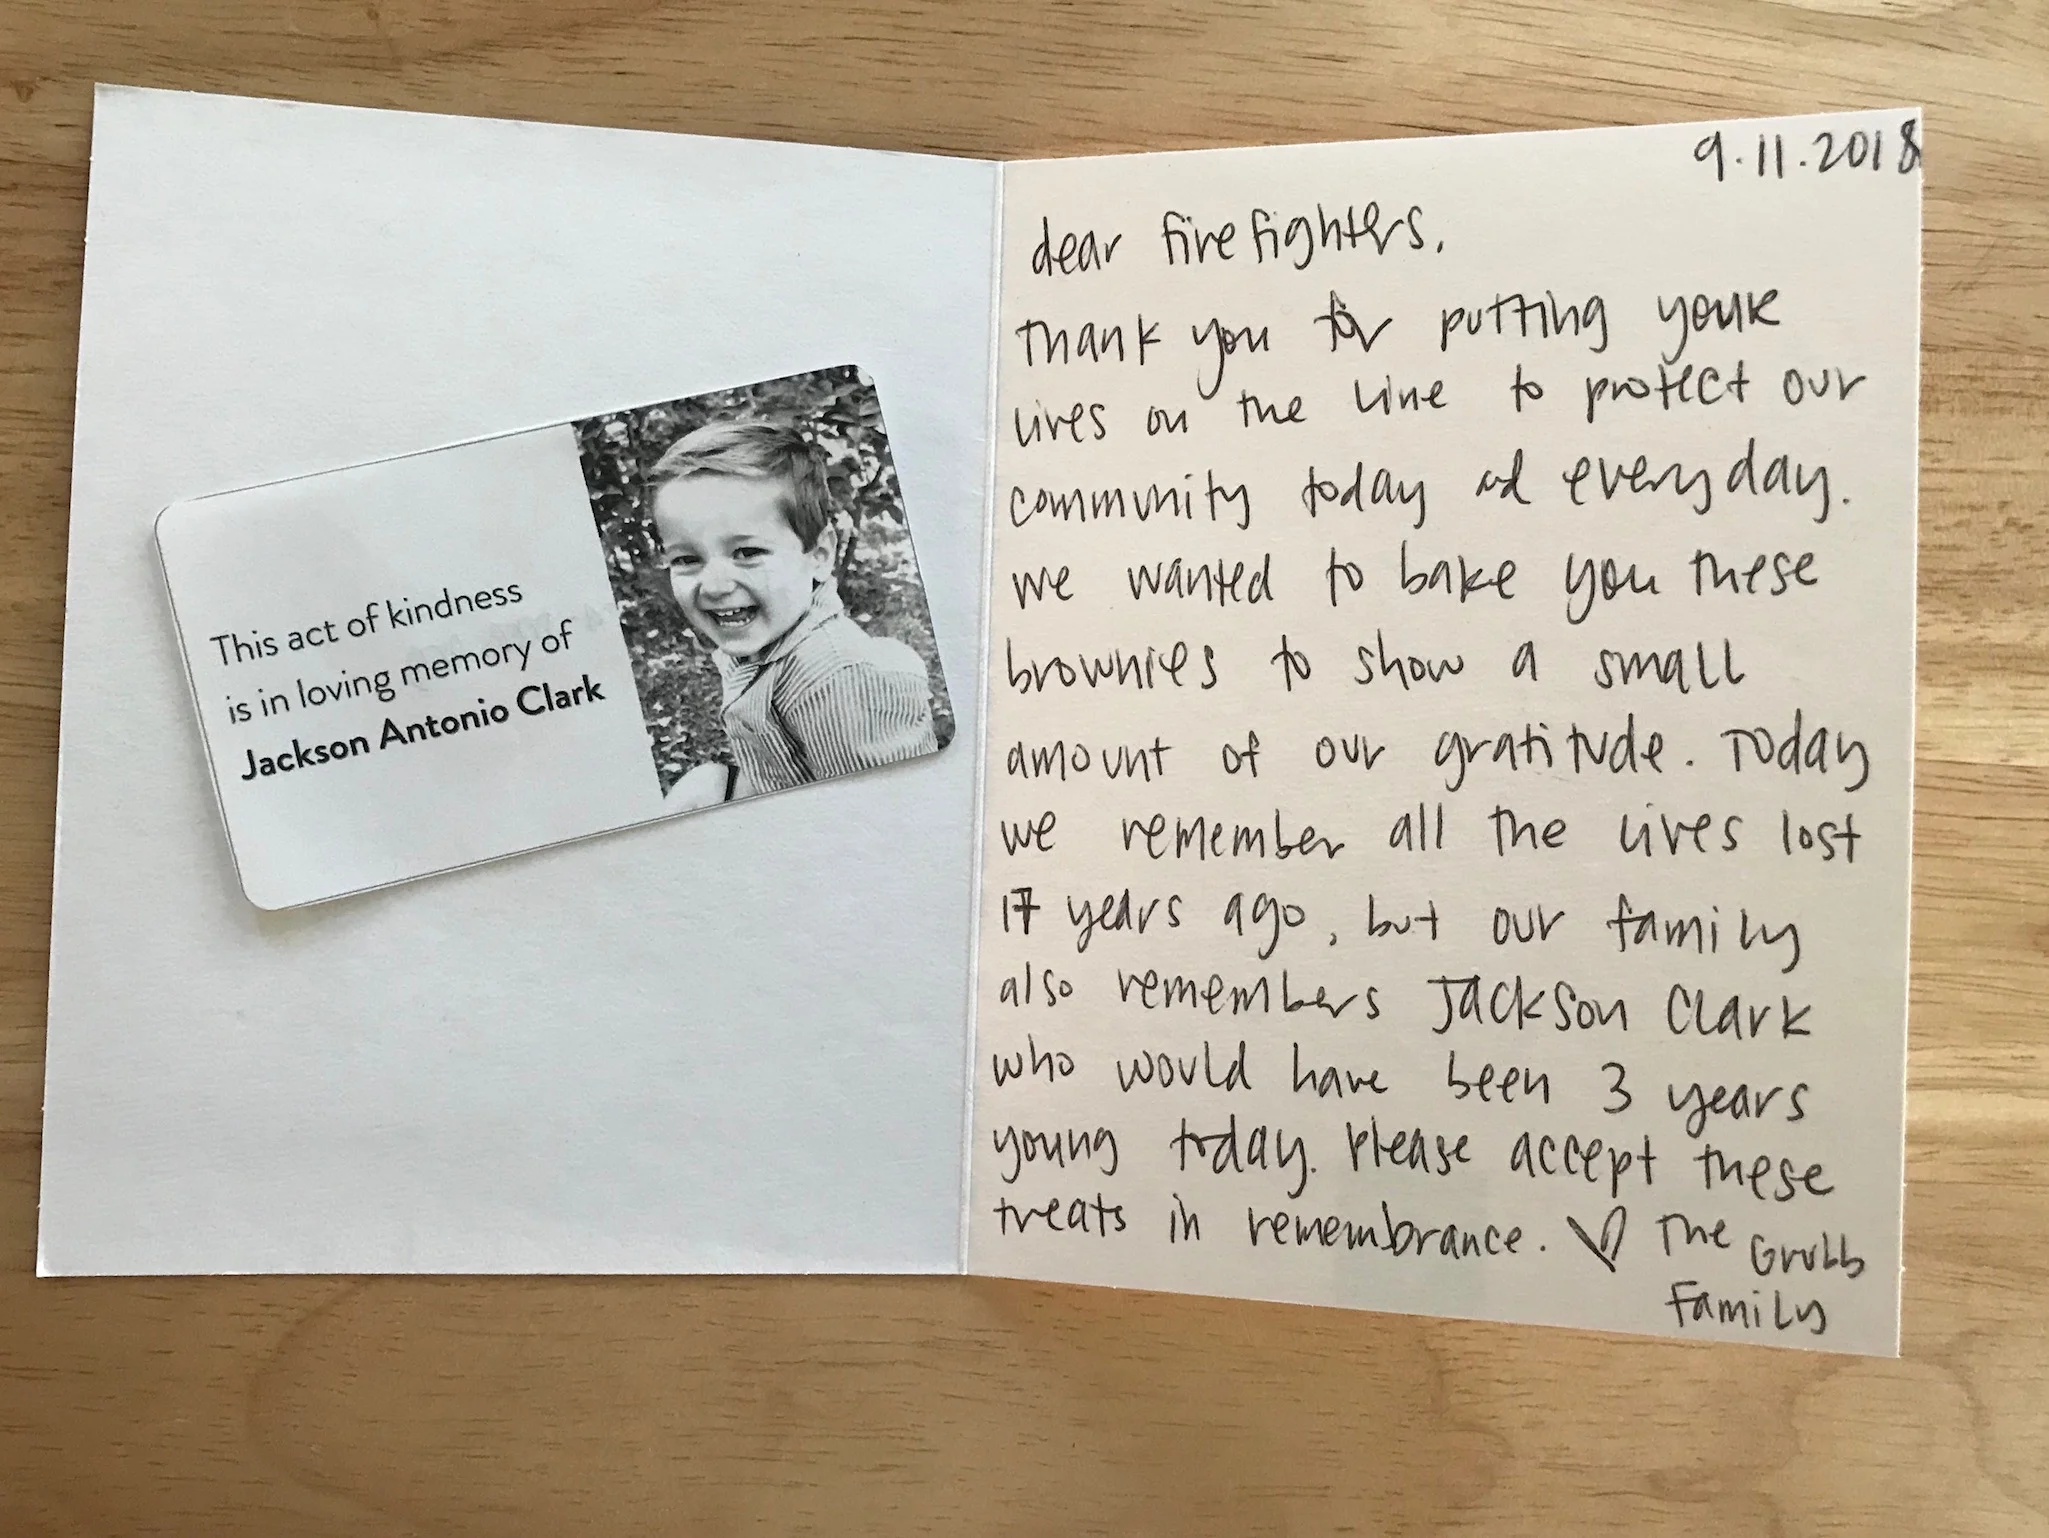 This act of kindness
is in loving memory of
Jackson Antonio Clark
9.11.2018
dear firefighters,
Thank you for putting your
lives on the line to protect our
community today and everyday.
we wanted to bake you these
brownies to show a small
amount of our gratitude. Today
we remember all the lives lost
17 years ago, but our family
also remembers Jackson Clark
who would have been 3 years
young today. Please accept these
treats in remembrance. ♡ The Grubb
Family